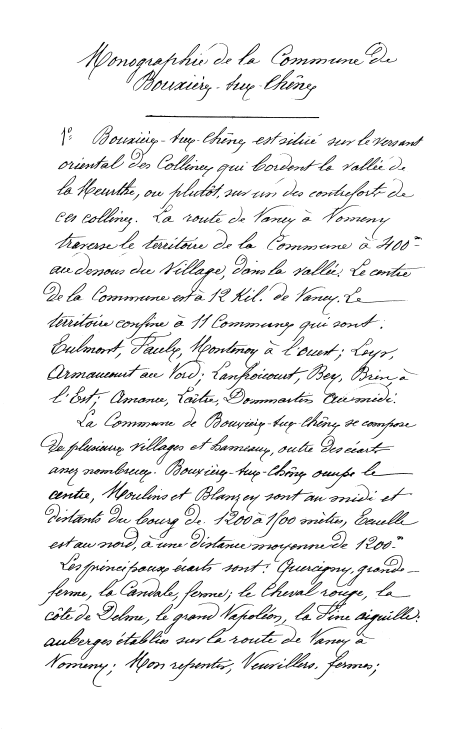 Monographie de la Commune de
Bouxières-aux-Chênes
1º Bouxières-aux-Chênes est situé sur le versant
oriental des Collines qui bordent la vallée de
la Meurthe, ou plutôt, sur un des contreforts de
ces collines. La route de Nancy à Nomeny
traverse le territoire de la Commune à 400m
au dessous du Village, dans la vallée. Le centre
de la Commune est à 12 Kil. de Nancy. Le
territoire confine à 11 Communes qui sont :
Eulmont, Faulx, Montenoy à l'ouest ; Leyr,
Armaucourt au Nord ; Lanfroicourt, Bey, Brin, à
l'Est ; Amance, Laître, Dommartin au midi.
La Commune de Bouxières-aux-Chênes se compose
de plusieurs villages et hameaux, outre des écarts
assez nombreux. Bouxières-aux-Chênes occupe le
centre, Moulins et Blanzey sont au midi et
distants du bourg de 1200 à 1500 mètres, Ecuelle
est au nord, à une distance moyenne de 1200.m
Les principaux écarts sont : Quercigny, grande
ferme, la Candale, ferme ; le Cheval rouge, la
côte de Delme, le grand Napoléon, la Fine aiguille :
auberges établies sur la route de Nancy à
Nomeny ; Mon repentir, fermes ;